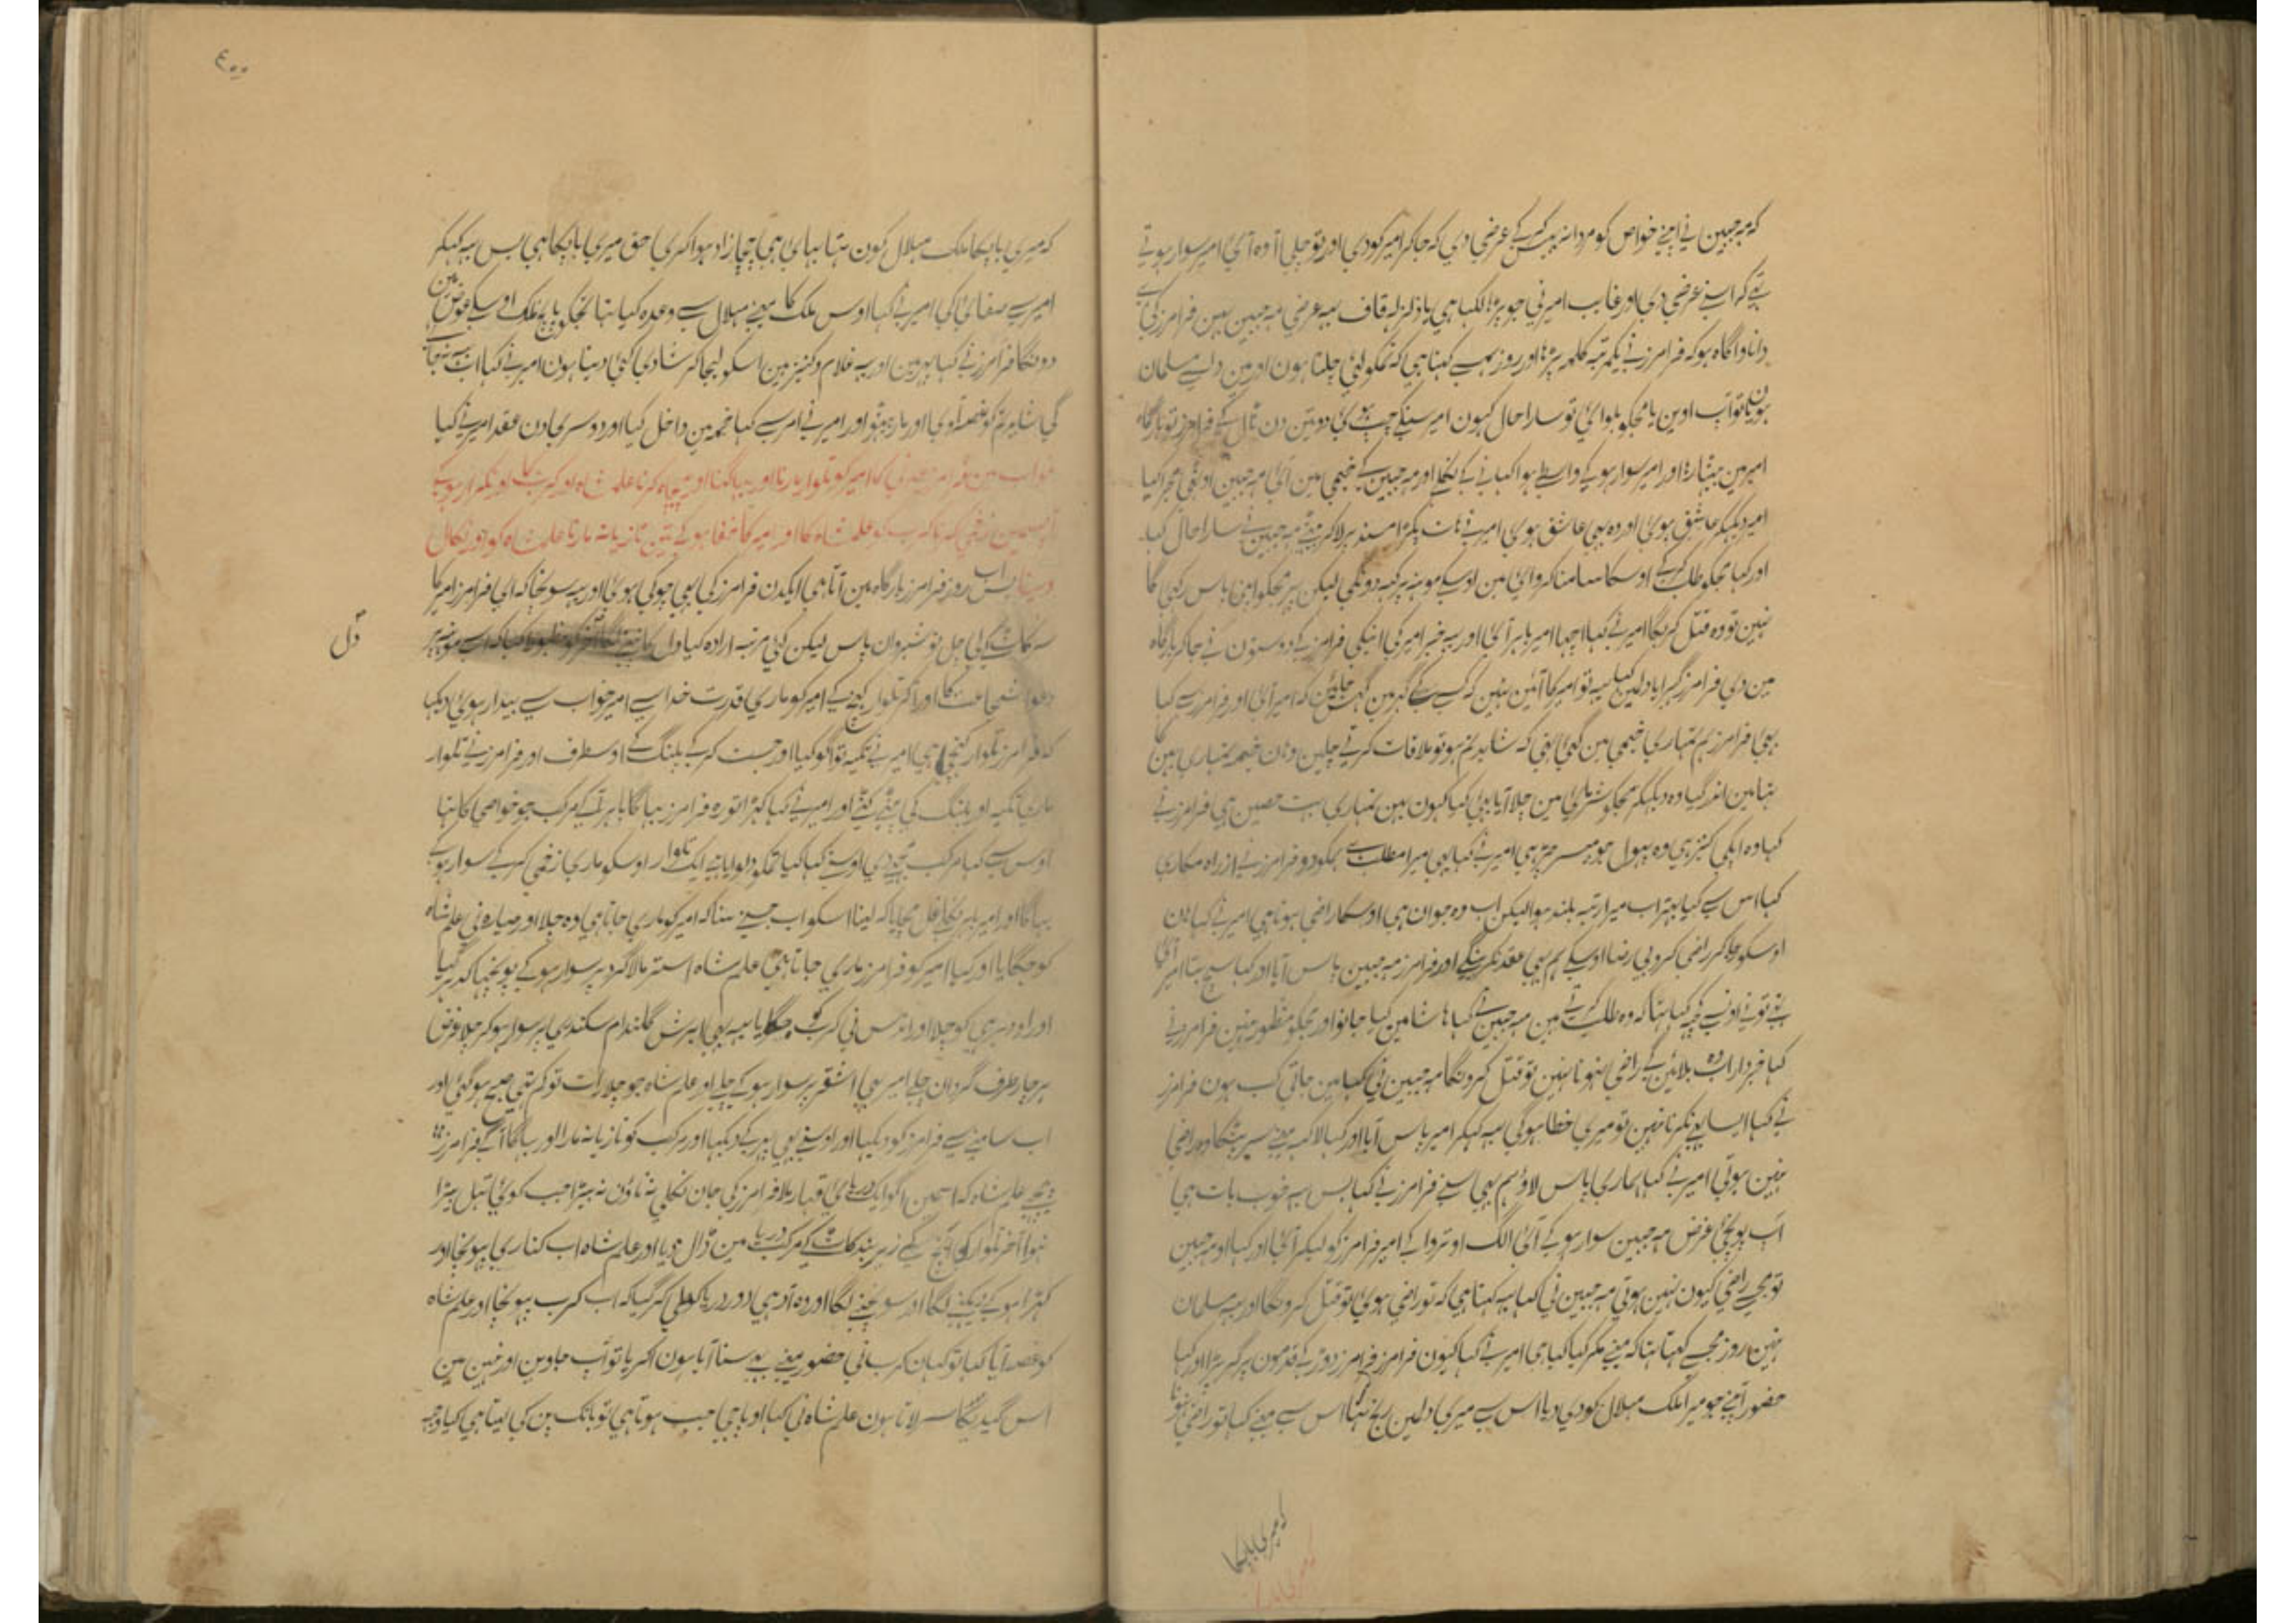 که مہ جبین نی اپنے خواص کو مردانہ بہیس کرکے عرضی دی کہ جاکر امیر کو دی اور تو چلی آ وہ آئی امیر سوار ہوتے
تہے کہ اسنے عرضی دی اور غایب امیر نی جو پڑہا لکہا ہی یا زلزلہ قاف یہ عرضی مہ جبین
دانا و آگاہ ہو کہ فرامرز نے یکمرتبہ کلمہ پڑہا اور روز یہی کہتا ہی کہ تمکو لئی چلتا ہون اور مین دلسے مسلمان
تو آپ اوین یا مجکو بلوائی تو سارا حال کہون امیر سنکے چپ ہوئی دو تین دن ٹال کے فرامرز تو بارگاہ
امیر مین بیٹہا رہا اور امیر سوار ہوکے واسطے ہوا کہانے کے نکلے اور مہ جبین کے خیمی مین آئی مہ جبین اوٹہی مجرا کیا
امیر دیکہکر عاشق ہوئی اور وہ بہی عاشق ہوی امیر نے ہات پکڑا مسند پر لاکر بیٹہے مہ جبین نے سارا حال کہا
اور کہا مجکو طلب کرکے اوسکا سامنا کروائی مین اوسکے مونہہ پر کہہ دونگی لیکن پہر مجکو اپنی پاس رکہی گا
نہین تو وہ قتل کریگا امیر نے کہا اچہا امیر باہر آئی اور یہ خبر امیر کی انیکی فرامرز کے دوستون نے جاکر بارگاہ
مین دی فرامرز گہبرایا دلمین کہا یہ تو امیر کا آئین نہین کہ کسی کے گہر مین گہس جائین کہ امیر آئی اور فرامرز سے کہا
بہئی فرامرز ہم تمہاری خیمی مین گئی تہی کہ شاید تم ہو تو ملاقات کرتے چلین وہان خیمہ تمہاری بہن کا
تہا مین اندر گیا وہ دیکہکر مجکو شرمائی مین چلا آیا بہئی کیا کہون بہن تمہاری بہت حسین ہی فرامرز نے
کہا وہ اپکی کنیز ہی وہ پہول جو سر چڑہی امیر نے کہا بہئی میرا مطلب ہے مجکو دو فرامرز نے از راہ مکاری
کہا اس سے کیا بہتر اب میرا رتبہ بلند ہوا لیکن اب وہ جوان ہی اوسکا راضی ہونا ہی امیر نے کہا ہان
اوسکو جاکر راضی کرو بی رضا اوسکے ہم بہی عقد نکرینگے اور فرامرز مہ جبین پاس آیا اور کہا سچ بتا امیر آئی
تہے تونے اونسے کچہ کہا تہا کہ وہ طلب کرتے ہین مہ جبین نے کہا ہاشا مین کیا جانو اور مجکو منظور نہین فرامرز نے
کہا خبردار اب وہ بلائین گے راضی نہونا نہین تو قتل کرونگا مہ جبین نی کہا مین جاتی کب ہون فرامرز
نے کہا ایسا ہی نکرنا نہین تو میری خطا ہوگی یہ کہکر امیر پاس آیا اور کہا لاکہہ مینے سر پٹکا وہ راضی
نہین ہوتی امیر نے کہا ہماری پاس لاؤ ہم بہی سنے فرامرز نے کہا بس یہ خوب بات ہی
آپ پوچہئی غرض مہ جبین سوار ہوکے آئی الگ اوتروا کے امیر فرامرز کو لیکر آئی اور کہا او مہ جبین
تو مجہسے راضی کیون نہین ہوتی مہ جبین نی کہا یہ کہتا ہی کہ تو راضی ہوئی تو قتل کرونگا اور یہ مسلمان
نہین روز مجہسے کہتا تہا کہ مینے مکر کیا کیا ہی امیر نے کہا کیون فرامرز فرامرز دوڑ کے قدمون پر گر پڑا اور کہا
حضور آپنے جو میرا ملک ہلال کو دی دیا اس سے میری دلمین رنج تہا اس سے مینے کہا تو راضی نہونا
کہ میری باپکا
٤٠٠
کہ میری باپکا ملک ہلال کون تہا بہائی ہی چچازاد ہوا کری حق میری باپکا ہی بس یہ کہکر
امیر سے صفائی کی امیر نے کہا اوس ملک کا مینے ہلال سے وعدہ کیا تہا تجکو پانچ ملک اوسکے عوض مین
دونگا فرامرز نے کہا پہر مین اور یہ غلام و کنیز ہین اسکو لیجا کر شادی کئی دیتا ہون امیر نے کہا اب یہ نہ جائے
گی شاید تم کو غصہ آوی اور مار بیٹہو اور امیر نے امر سے کہا خیمہ مین داخل کیا اور دوسری دن عقد امیر نے کیا
خواب مین فرامرز کا امیر کو تلوار مارنا اور بہاگنا اور پیچہا کرنا علم شاہ اور کرب کا اور تکرار ہوکے
آپسمین زخمی کرنا کرب کو علم شاہ کا اور امیر کا خفا ہوکے تین تازیانہ مارنا علم شاہ کو اور نکال
دینا بس اب روز فرامرز بارگاہ مین آتا ہی ایکدن فرامرز کی بہی چوکی ہوئی اور یہ سونچا کہ ای فرامرز امیر کا
سر کاٹ کے لی چل نوشیروان پاس لیکن کئی مرتبہ ارادہ کیا دل کانپنے لگا آخر کو
دل
دعوا شجاعت کا اور آکر تلوار کہینچ کے امیر کو ماری قدرت خدا سے امیر خواب سے بیدار ہوئی دیکہا
کہ فرامرز تلوار کہنچی ہی امیر نے تکیہ تو آگو کیا اور جست کرکے پلنگ کے اوسطرف اور فرامرز نے تلوار
ماری تکیہ اور پلنگ کی پٹی کٹی اور امیر نے کہا کہڑا تو رہ فرامرز بہاگا باہر آکے مرکب جو خواصی کا تہا
اوس سے کہا مرکب مجہے دی اوسنے کہا کیا تمکو دلوایا ہے ایک تلوار اوسکو ماری زخمی کرکے سوار ہوکے
بہاگا اور امیر باہر نکلے غل مچایا کہ لینا اسکو اب جسنے سنا کہ امیر کو ماری جاتا ہی وہ چلا اور سیارہ نی علم شاہ
کو جگایا اور کہا امیر کو فرامرز ماری جاتا ہی علم شاہ استر مالا گرد پر سوار ہوکے پوچہا کدہر گیا
اور اودہر ہی کو چلا اور اندس نی کرب کو جگایا یہ بہی ابرش گلندام سکندری پر سوار ہوکر چلا غرض
ہر چار طرف گردان چلے امیر بہی اشقر پر سوار ہوکے چلے اور علم شاہ جو چلا رات تو کم تہی صبح ہوگئی اور
اب سامنے سے فرامرز کو دیکہا اور اوسنے بہی پہر کے دیکہا اور مرکب کو تازیانہ مارا اور بہاگا آگے فرامرز
پیچہے علم شاہ کہ اسمین آگو ایک دریائی قہار ملا فرامرز کی جان نکلی نہ ناؤن نہ بیڑا جب کوئی تبل بیڑا
نہوا آخر تلوار کہینچ کے زیربند کاٹ کے مرکب دریا مین ڈال دیا اور علم شاہ اب کناری پہونچا اور
کہڑا ہوکے دیکہنے لگا اور سونچنے لگا اور وہ آدہی دور دریا کو طی کر گیا کہ اب کرب پہونچا اور علم شاہ
کو غصہ آیا کہا تو کہان کرب نی حضور مینے یہ سنا آیا ہون اکر یا تو آپ جاوین اور نہین مین
اس گیدیکا سر لاتا ہون علم شاہ نی کہا او پاجی جب ہوتا ہی تو بانک پن کی لیتا ہی کیا وجہ